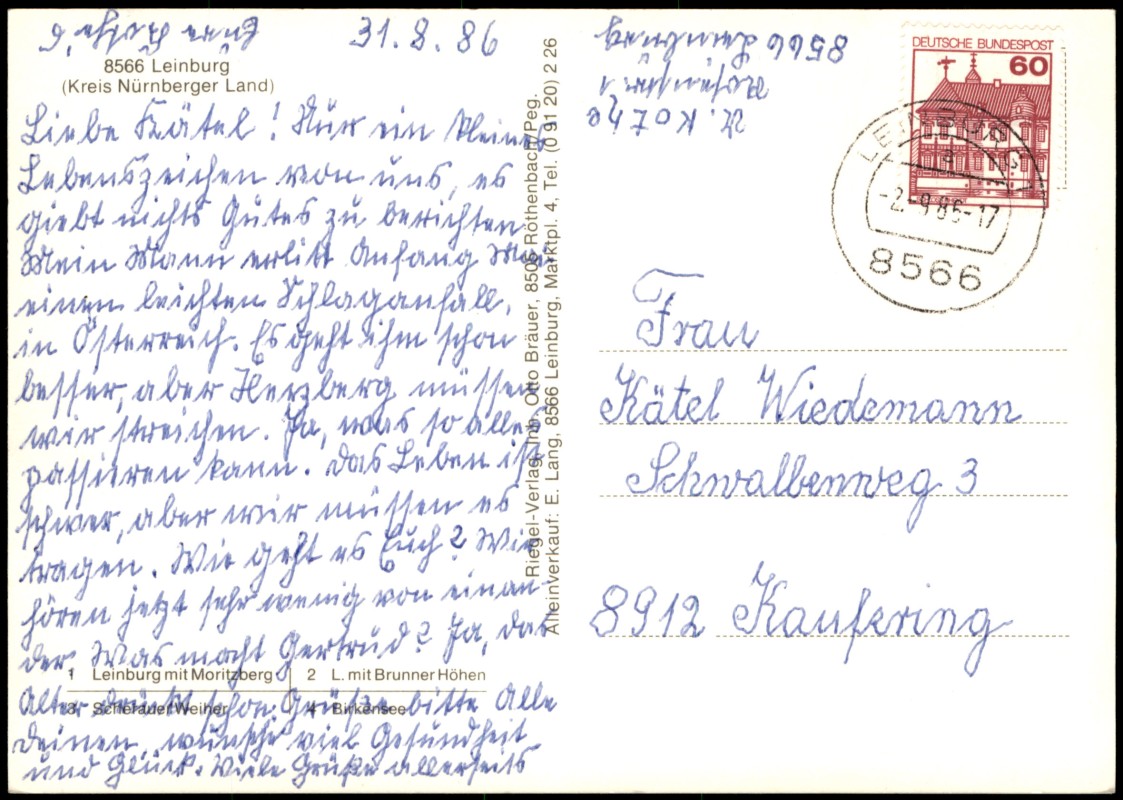 31.8.86
8566 Leinburg
(Kreis Nürnberger Land)
Liebe Kätel! Nur ein kleines
Lebenszeichen von uns, es
giebt nichts Gutes zu berichten
Mein Mann erlitt Anfang Mai
einen leichten Schlaganfall,
in Österreich. Es geht ihm schon
besser, aber Herzberg müssen
wir streichen. Ja, was so alles
passieren kann. Das Leben ist
schwer, aber wir müssen es
tragen. Wie geht es Euch? Wir
hören jetzt sehr wenig von einan-
der. Was macht Gertrud? Ja, das
Alter drückt schon. Grüße bitte Alle
Deinen, wünsche viel Gesundheit
und Glück. Viele Grüße allerseits
Eure
1 Leinburg mit Moritzberg
2 L. mit Brunner Höhen
3 Scherauer Weiher
4 Birkensee
Riegel-Verlag, Inh. Otto Bräuer, 8505 Röthenbach/Peg.
Alleinverkauf: E. Lang, 8566 Leinburg, Marktpl. 4, Tel. (0 91 20) 2 26
K. Kothe
8566 Leinburg
DEUTSCHE BUNDESPOST
60
LEINBURG
a
-2.-9.86-17
8566
Frau
Kätel Wiedemann
Schwalbenweg 3
8912 Kaufering